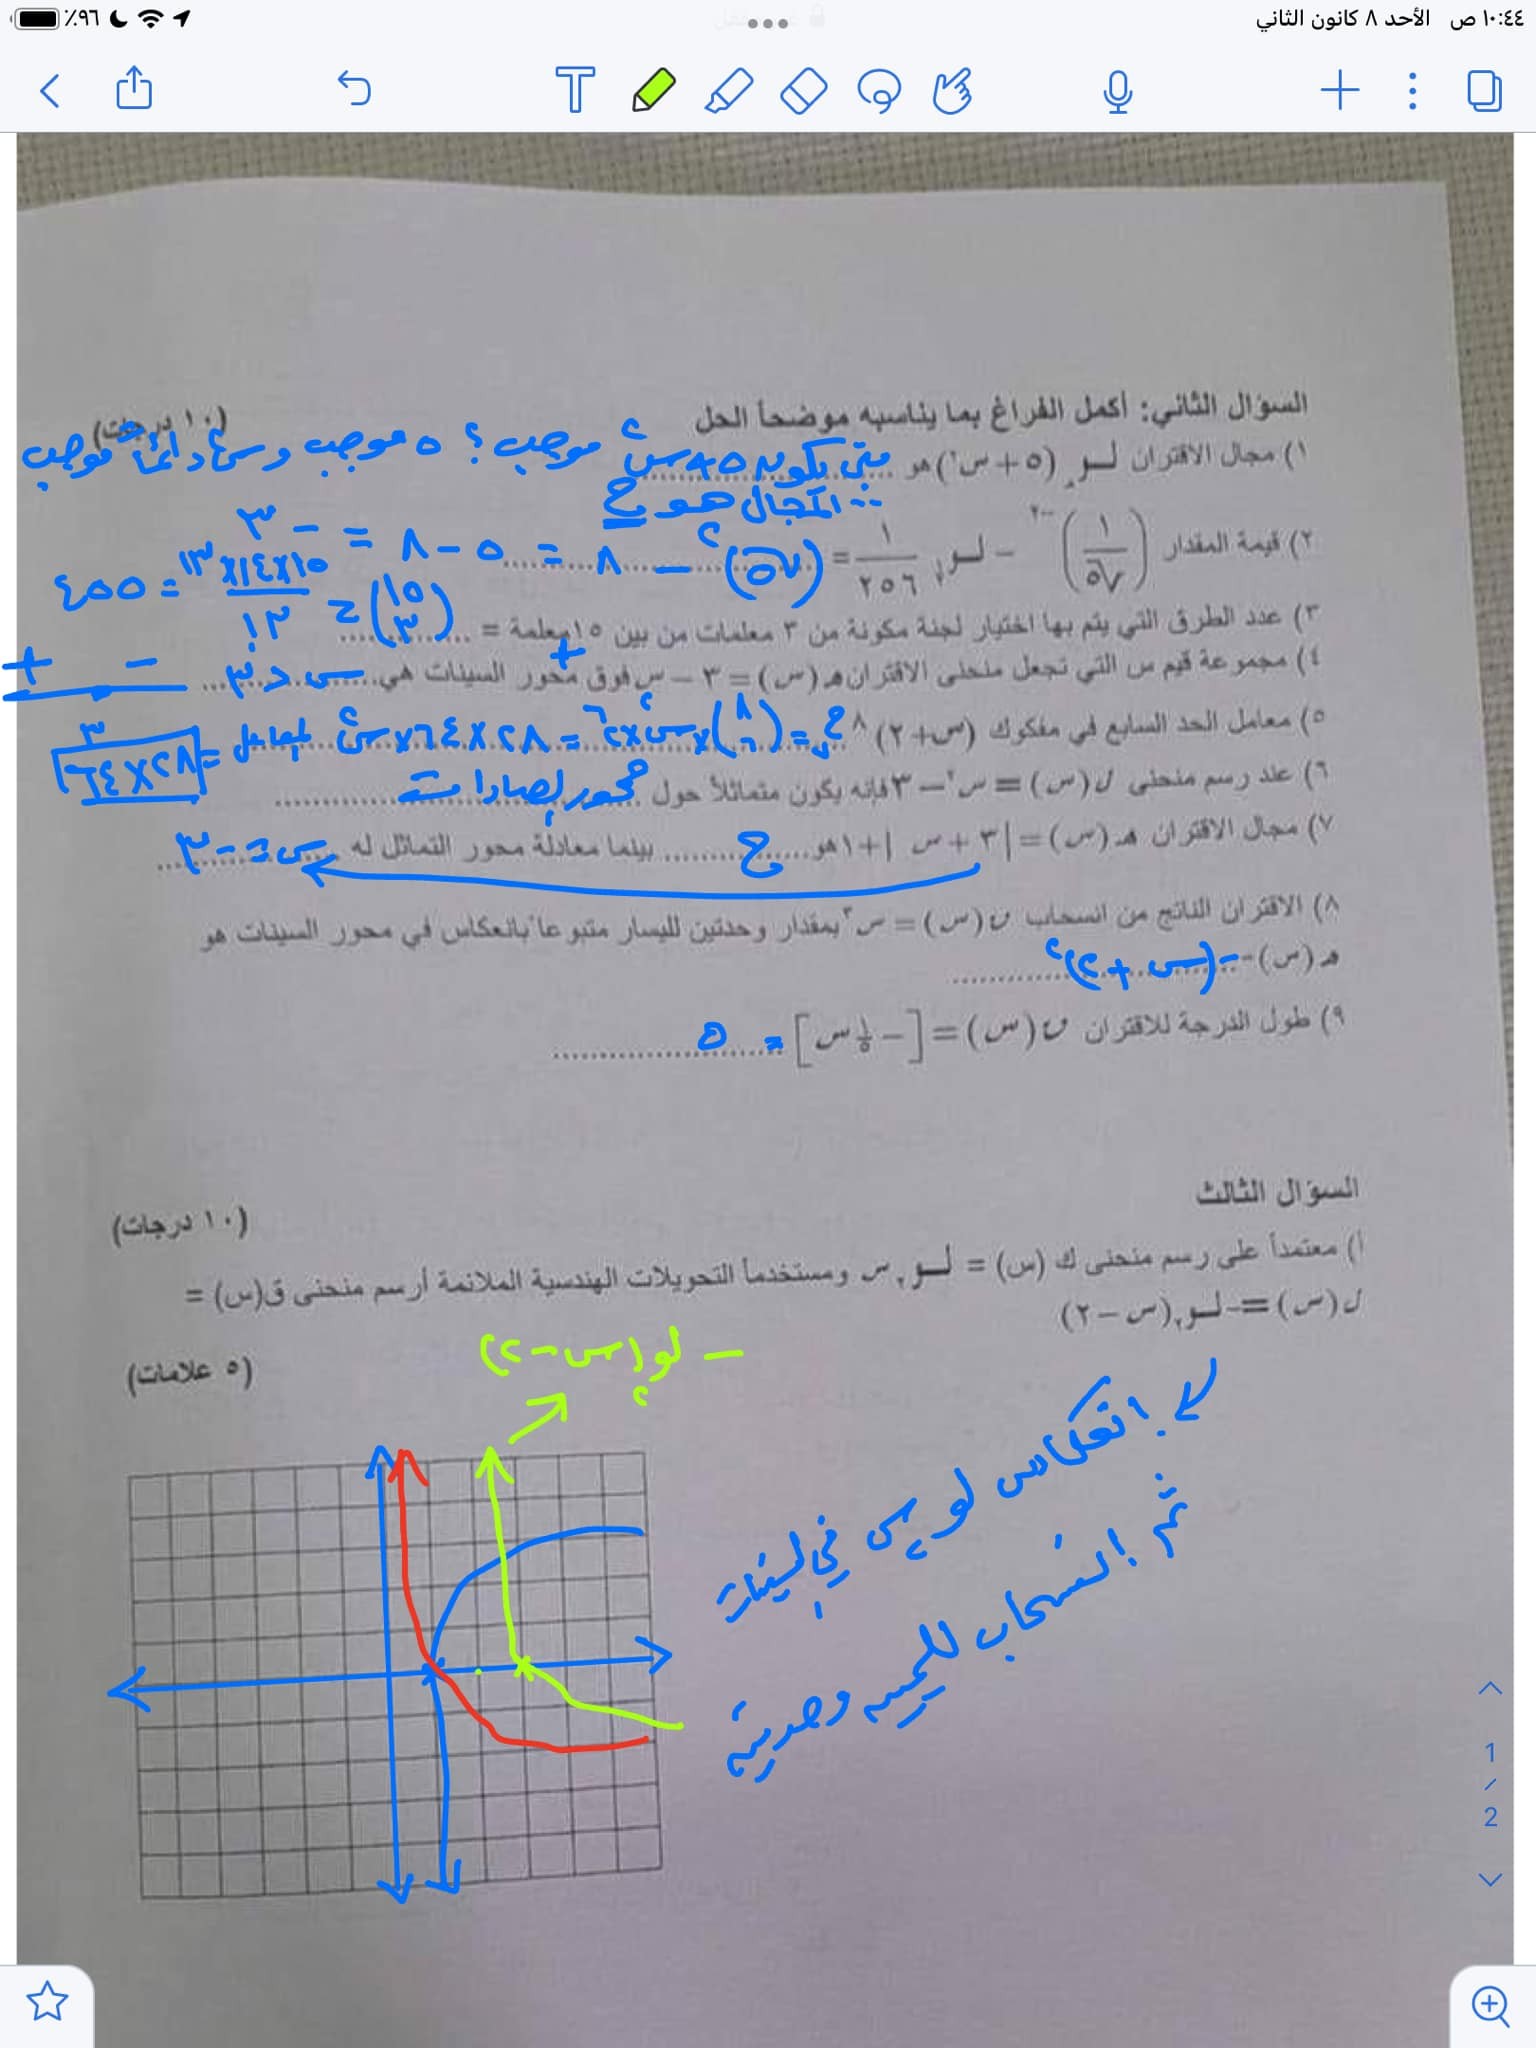 ١٠:٤٤ ص الأحد ٨ كانون الثاني
٩٦٪
السؤال الثاني: أكمل الفراغ بما يناسبه موضحاً الحل (١٠ درجات)
١) مجال الاقتران لـو (٥ + س٢) هو متى يكون ٥ + س٢ موجب؟ ٥ موجب و س٢ دائماً موجب
∴ المجال هو ح
٢) قيمة المقدار (١/√٥)^-٢ - لـو٢ ١/٢٥٦ = (√٥)٢ - ٨ = ٥ - ٨ = -٣
٣) عدد الطرق التي يتم بها اختيار لجنة مكونة من ٣ معلمات من بين ١٥ معلمة = (١٥ ٣) = ١٥×١٤×١٣/٣! = ٤٥٥
٤) مجموعة قيم س التي تجعل منحنى الاقتران هـ(س) = ٣ - س فوق محور السينات هي س < ٣
+ - + ٣
٥) معامل الحد السابع في مفكوك (س + ٢)^٨ ح٧ = (٨ ٦) × س٢ × ٢^٦ = ٢٨ × ٦٤ × س٢ المعامل = ٢٨×٦٤
٦) عند رسم منحنى ل(س) = س٢ - ٣ فإنه يكون متماثلاً حول محور الصادات
٧) مجال الاقتران هـ(س) = |٣ + س| + ١ هو ح بينما معادلة محور التماثل له س = -٣
٨) الاقتران الناتج من انسحاب ق(س) = س٢ بمقدار وحدتين لليسار متبوعاً بانعكاس في محور السينات هو
هـ(س) = -(س + ٢)٢
٩) طول الدرجة للاقتران ق(س) = [- ١/٥ س] = ٥
السؤال الثالث (١٠ درجات)
أ) معتمداً على رسم منحنى ك (س) = لـو٢ س ومستخدماً التحويلات الهندسية الملائمة أرسم منحنى ق(س) =
ل(س) = -لـو٢(س - ٢)
(٥ علامات)
- لو٢(س - ٢)
انعكاس لو٢س في السينات
ثم انسحاب لليمين وحدتين
1
/
2